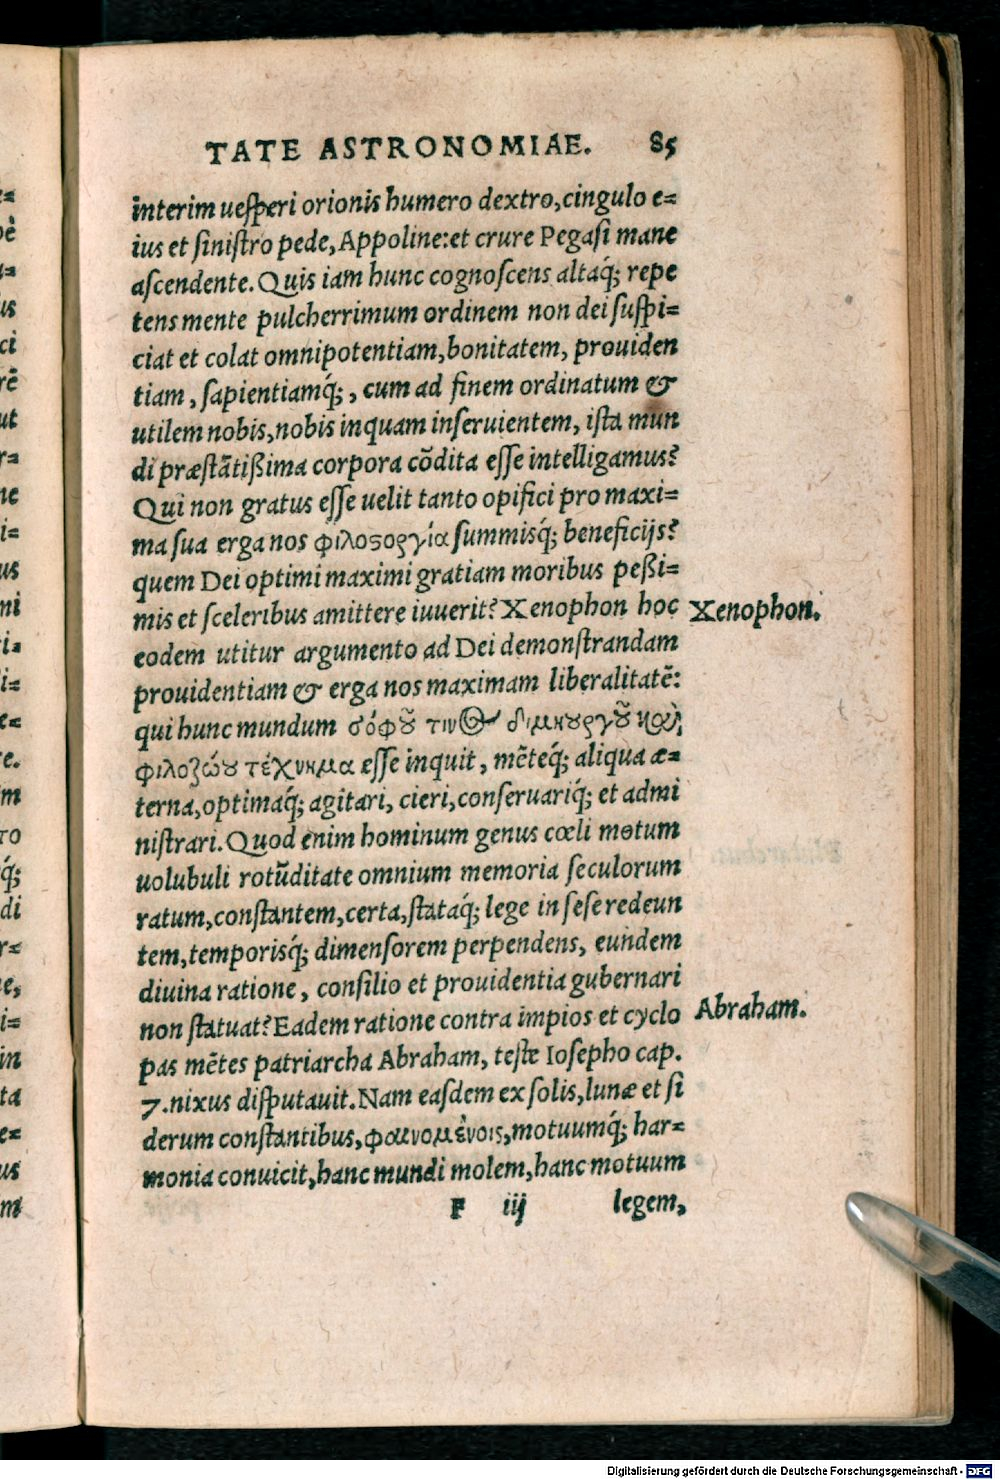 TATE ASTRONOMIAE. 85
interim ueſperi orionis humero dextro, cingulo e=
ius et ſiniſtro pede, Appoline: et crure Pegaſi mane
aſcendente. Quis iam hunc cognoſcens altaq́; repe
tens mente pulcherrimum ordinem non dei ſuſpi=
ciat et colat omnipotentiam, bonitatem, prouiden
tiam, ſapientiamq́;, cum ad finem ordinatum &
utilem nobis, nobis inquam inſeruientem, iſta mun
di præſtãtißima corpora cõdita eſſe intelligamus?
Qui non gratus eſſe uelit tanto opifici pro maxi=
ma ſua erga nos φιλοϛοργία ſummisq́; beneficijs?
quem Dei optimi maximi gratiam moribus peßi=
mis et ſceleribus amittere iuuerit? Xenophon hoc
Xenophon.
eodem utitur argumento ad Dei demonſtrandam
prouidentiam & erga nos maximam liberalitatẽ:
qui hunc mundum σόφȣ͂ τινος διμηȣργȣ͂ καὶ
φιλοζώȣ τέχνημα eſſe inquit, mẽteq́; aliqua æ=
terna, optimaq́; agitari, cieri, conſeruariq́; et admi
niſtrari. Quod enim hominum genus cœli motum
uolubuli rotũditate omnium memoria ſeculorum
ratum, conſtantem, certa, ſtataq́; lege in ſeſe redeun
tem, temporisq́; dimenſorem perpendens, eundem
diuina ratione, conſilio et prouidentia gubernari
non ſtatuat? Eadem ratione contra impios et cyclo
Abraham.
pas mẽtes patriarcha Abraham, teſte Ioſepho cap.
7. nixus diſputauit. Nam eaſdem ex ſolis, lunæ et ſi
derum conſtantibus, φαινομένοις, motuumq́; har=
monia conuicit, hanc mundi molem, hanc motuum
F iij legem,
Digitalisierung gefördert durch die Deutsche Forschungsgemeinschaft - DFG